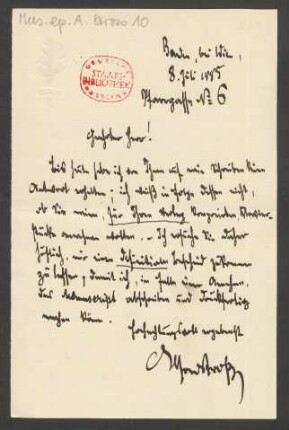 Mus. ep. A. Door 10
STAATS-
BIBLIOTHEK
MÜNCHEN
Baden, bei Wien,
8. Juli 1895
Pfarrgasse No 6
Geehrter Herr!
Bis heute habe ich von Ihnen auf mein Schreiben keine
Antwort erhalten; ich weiß in Folge dessen nicht,
ob Sie meine, für Ihren Verlag
stücke annehmen wollen. – Ich ersuche Sie daher
höflichst, mir einen definitiven Bescheid zukommen
zu lassen, damit ich, im Falle einer Annahme,
das Manuscript abschreiben und druckfertig
machen kann.
Hochachtungsvoll ergebenst